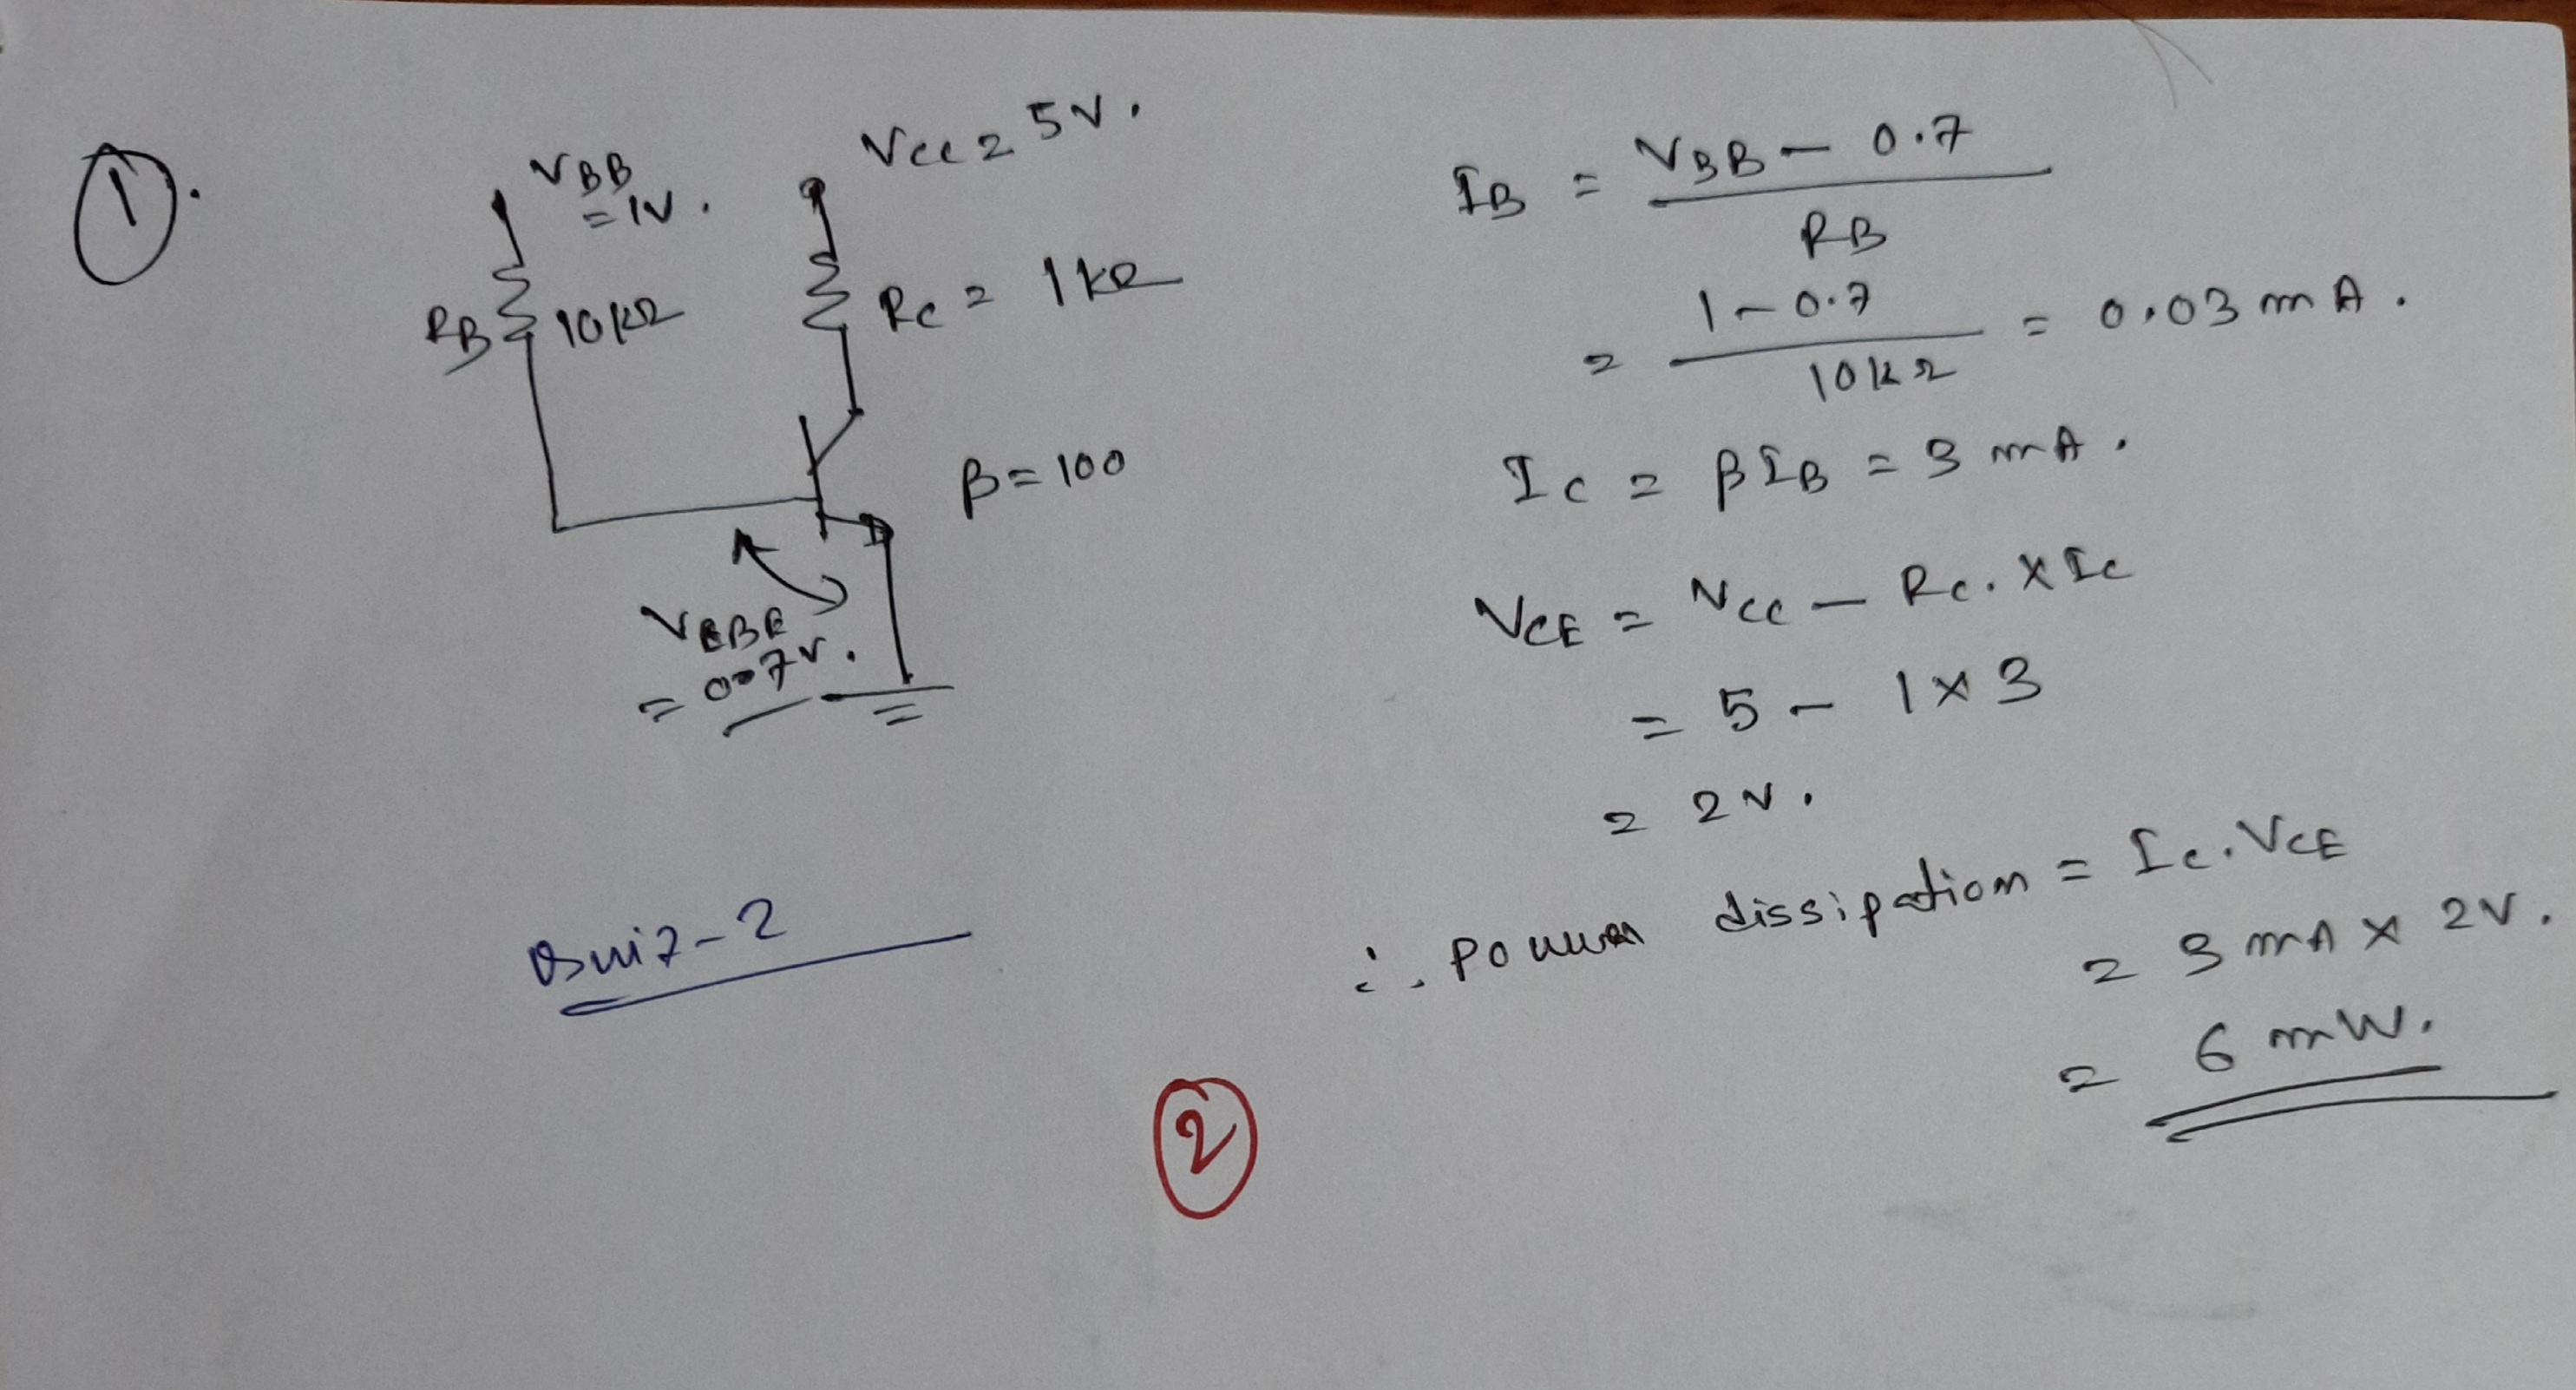 1.
VBB
= 1V.
VCC = 5V.
RB 10kΩ
RC = 1kΩ
β = 100
VBE
= 0.7V.
Quiz-2
IB = VBB - 0.7
RB
= 1 - 0.7
10kΩ
= 0.03 mA.
IC = βIB = 3 mA.
VCE = VCC - RC. × IC
= 5 - 1 × 3
= 2V.
∴ Power dissipation = IC. VCE
= 3 mA × 2V.
= 6 mW.
2